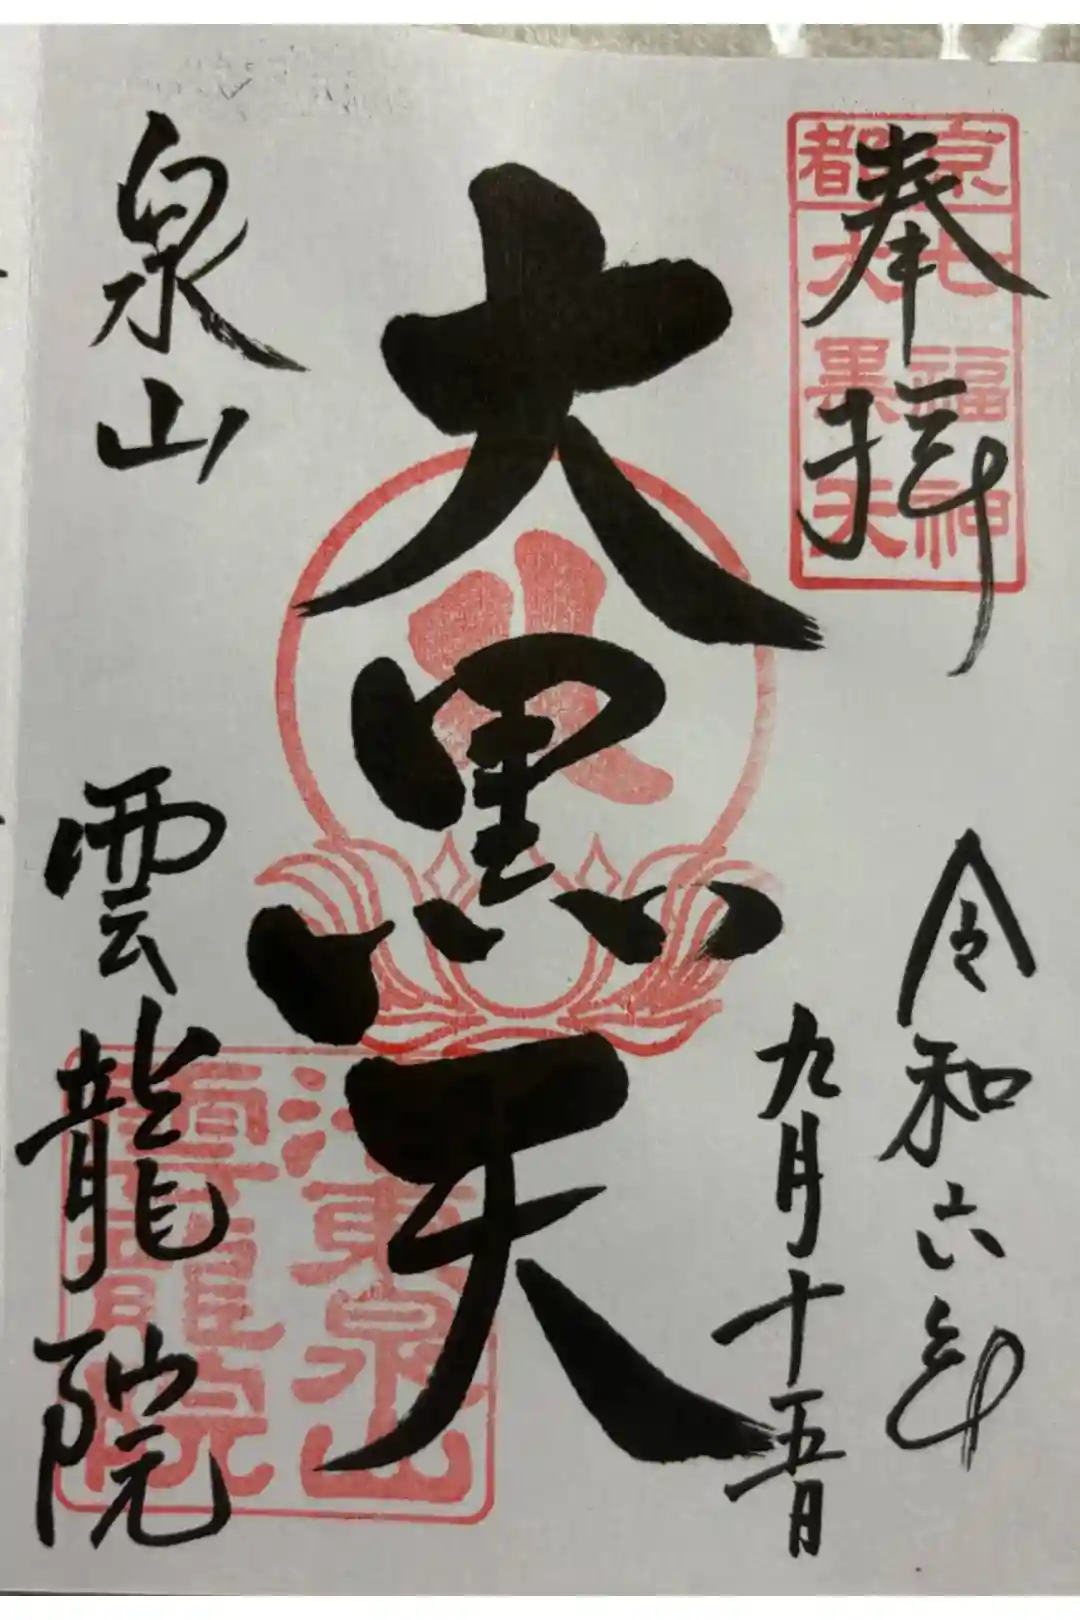 奉拝
京都
七福神
大黒天
令和六年
九月十五日
大黒天
泉山 雲龍院
洛東泉山
雲龍院